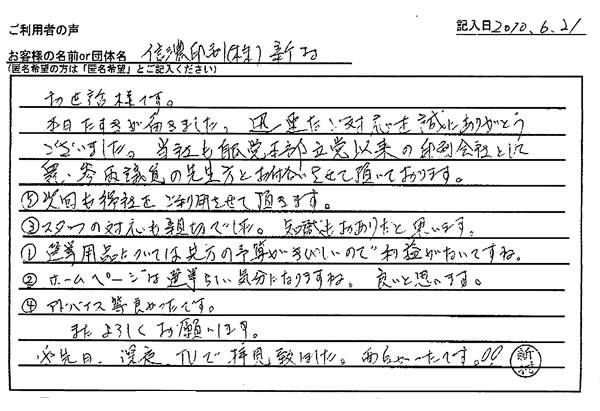 ご利用者の声
記入日2010.6.21
お客様の名前or団体名 信濃印刷(株) 新村
(匿名希望の方は「匿名希望」とご記入ください)
お世話様です。
本日たすきが届きました。迅速なご対応を誠にありがとう
ございました。当社も自民党本部立党以来の印刷会社として
衆・参両議員の先生方とお付合いさせて頂いております。
⑤次回も御社をご利用させて頂きます。
③スタッフの対応も親切でした。知識もおありだと思います。
①選挙用品については先方の予算がきびしいので利益がないですね。
②ホームページは選挙らしい気分になりますね。良いと思います。
④アドバイス等良かったです。
またよろしくお願いします。
必先日、深夜、TVで拝見致しました。面白かったです。!! 新村